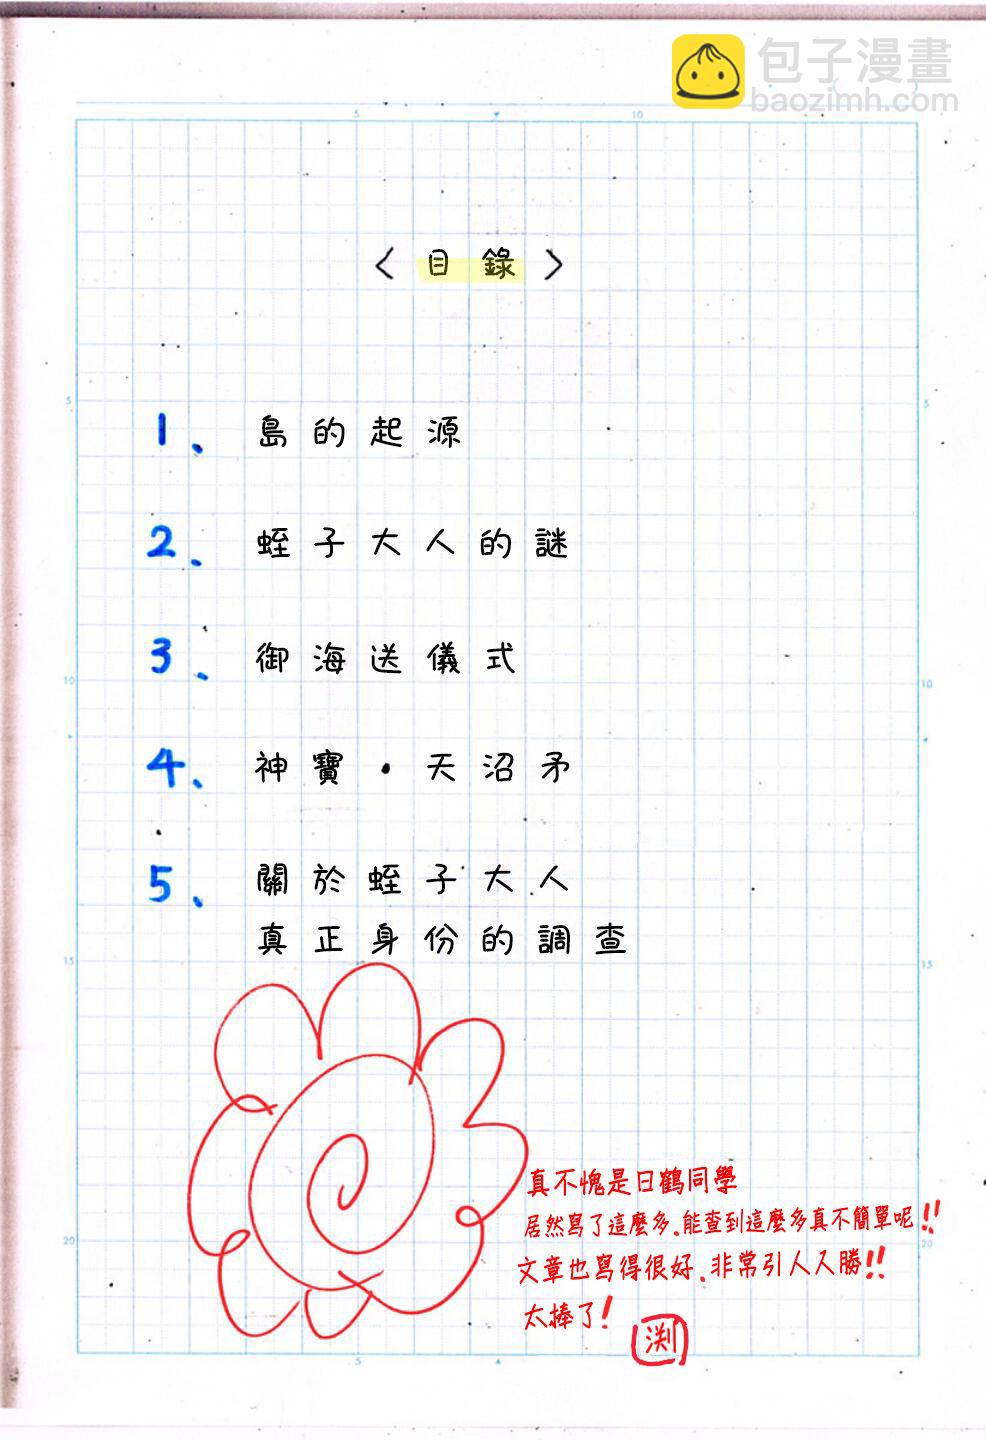 包子漫畫
baozimh.com
5
10
〈目錄〉
5
5
1、島的起源
2、蛭子大人的謎
3、御海送儀式
10
10
4、神寶·天沼矛
5、關於蛭子大人
真正身份的調查
15
15
真不愧是日鶴同學
居然寫了這麼多.能查到這麼多真不簡單呢!!
20
20
文章也寫得很好.非常引人入勝!!
太棒了!
渕
5